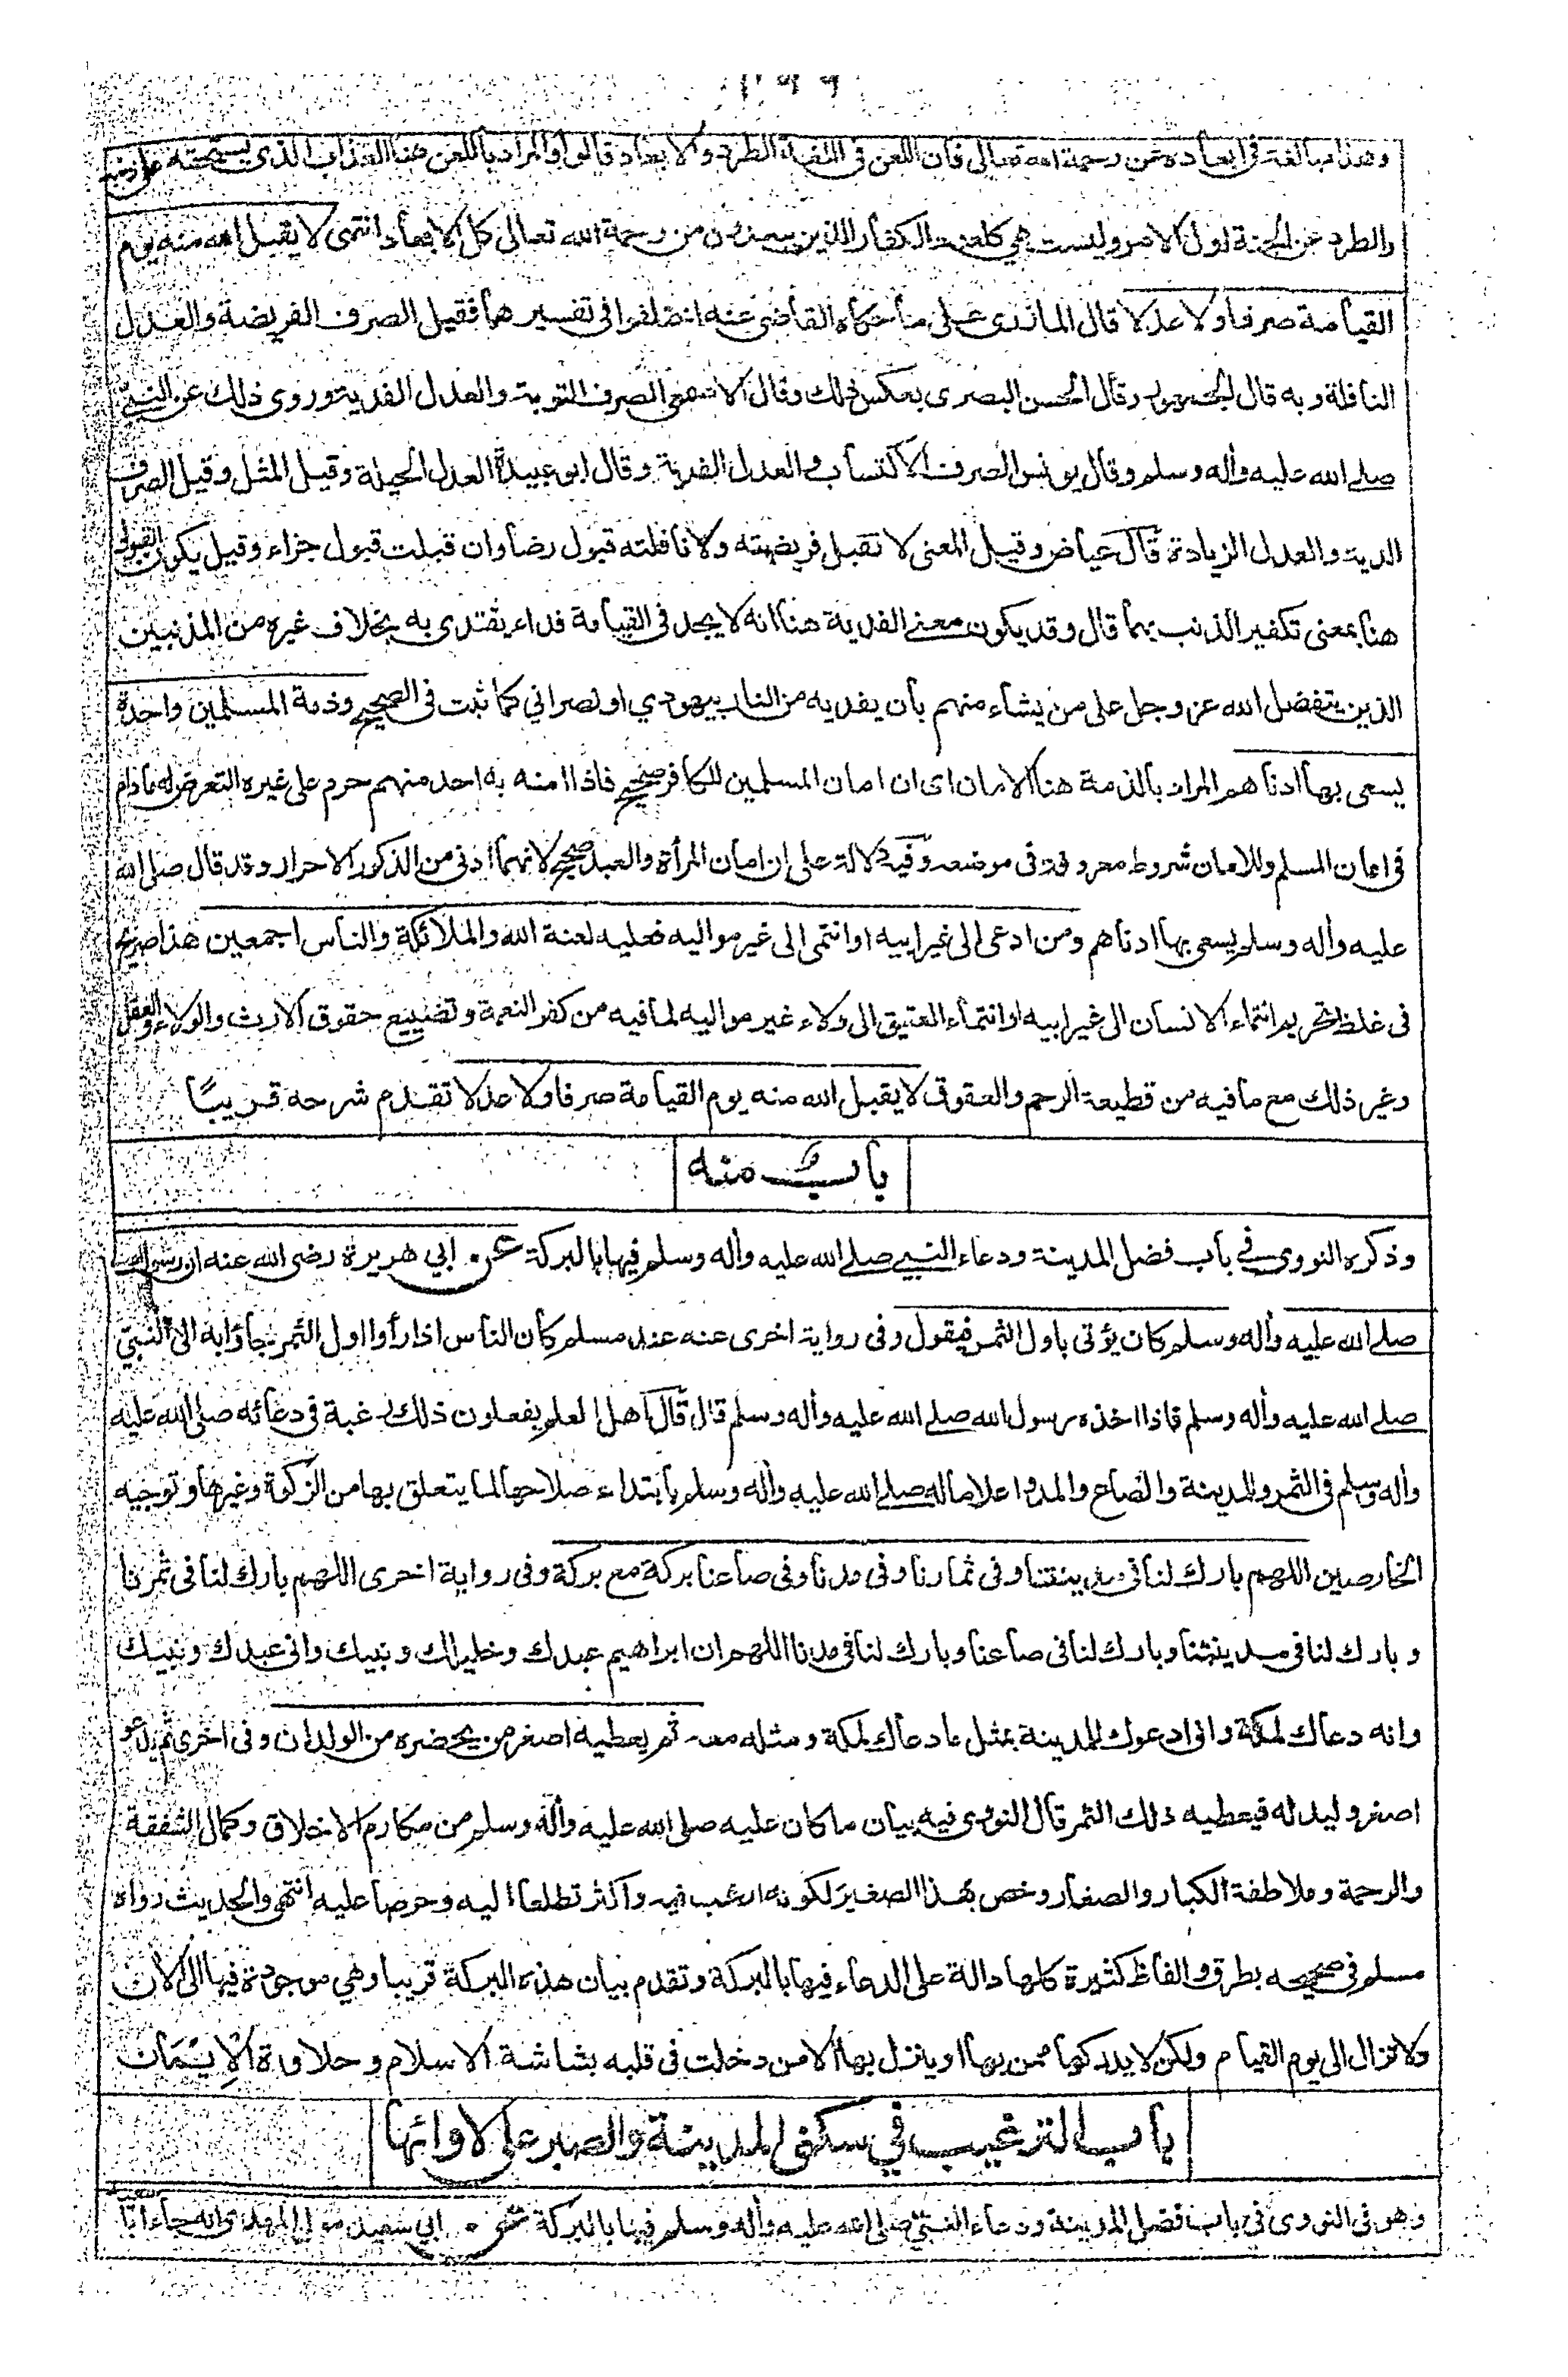 وهذا مبالغة في ابعاده من رحمة الله تعالى فان اللعن في اللغة الطرد والابعاد قالوا والمراد باللعن هنا العذاب الذي يستحقه على ذنبه
والطرد عن الجنة اول الامر وليست هي كلعنة الكفار الذين يبعدون من رحمة الله تعالى كل الابعاد انتهى لا يقبل الله منه يوم
القيامة صرفا ولا عدلا قال المازري على ما حكاه القاضي عنه اختلفوا في تفسيرهما فقيل الصرف الفريضة والعدل
النافلة وبه قال الجمهور وقال الحسن البصري بعكس ذلك وقال الاصمعي الصرف التوبة والعدل الفدية وروى ذلك عن النبي
صلى الله عليه وأله وسلم وقال يونس الصرف الاكتساب والعدل الفدية وقال ابو عبيدة العدل الحيلة وقيل المثل وقيل الصرف
الدية والعدل الزيادة قال عياض وقيل المعنى لا تقبل فريضته ولا نافلته قبول رضا وان قبلت قبول جزاء وقيل يكون القبول
هنا بمعنى تكفير الذنب بهما قال وقد يكون معنى الفدية هنا انه لا يجد في القيامة فداء يفتدى به بخلاف غيره من المذنبين
الذين يتفضل الله عز وجل على من يشاء منهم بأن يفديه من النار بيهودي او نصراني كما ثبت في الصحيح وذمة المسلمين واحدة
يسعى بها ادناهم المراد بالذمة هنا الامان اى ان امان المسلمين للكافر صحيح فاذا امنه به احد منهم حرم على غيره التعرض له مادام
في امان المسلم وللامان شروط معروفة في موضعه وفيه دلالة على ان امان المرأة والعبد صحيح لانهما ادنى من الذكور الاحرار وقد قال صلى الله
عليه وأله وسلم يسعى بها ادناهم ومن ادعى الى غير ابيه او انتمى الى غير مواليه فعليه لعنة الله والملائكة والناس اجمعين هذا صريح
في غلظ تحريم انتماء الانسان الى غير ابيه او انتماء العتيق الى ولاء غير مواليه لما فيه من كفر النعمة وتضييع حقوق الارث والولاء والعقل
وغير ذلك مع ما فيه من قطيعة الرحم والعقوق لا يقبل الله منه يوم القيامة صرفا ولا عدلا تقدم شرحه قريبًا
باب منه
وذكره النووي في باب فضل المدينة ودعاء النبي صلى الله عليه وأله وسلم فيها بالبركة عن ابي هريرة رضى الله عنه ان رسول الله
صلى الله عليه وأله وسلم كان يؤتى باول الثمر فيقول وفى رواية اخرى عنه عند مسلم كان الناس اذا رأوا اول الثمر جاؤا به الى النبي
صلى الله عليه وأله وسلم فاذا اخذه رسول الله صلى الله عليه وأله وسلم قال قال اهل العلم يفعلون ذلك رغبة في دعائه صلى الله عليه
وأله وسلم في الثمر والمدينة والصاع والمد واعلاما له صلى الله عليه وأله وسلم بابتداء صلاحها لما يتعلق بها من الزكوة وغيرها وتوجيه
الخارصين اللهم بارك لنا في مدينتنا وفى ثمارنا وفى مدنا وفى صاعنا بركة مع بركة وفى رواية اخرى اللهم بارك لنا في ثمرنا
وبارك لنا في مدينتنا وبارك لنا في صاعنا وبارك لنا في مدنا اللهم ان ابراهيم عبدك وخليلك ونبيك وانى عبدك ونبيك
وانه دعاك لمكة وانى ادعوك للمدينة بمثل ما دعاك لمكة ومثله معه ثم يعطيه اصغر من يحضره من الولدان وفى اخرى ثم يدعو
اصغر وليد له فيعطيه ذلك الثمر قال النووي فيه بيان ما كان عليه صلى الله عليه وأله وسلم من مكارم الاخلاق وكمال الشفقة
والرحمة وملاطفة الكبار والصغار وخص بهذا الصغير لكونه ارغب فيه واكثر تطلعا اليه وحرصا عليه انتهى والحديث رواه
مسلم في صحيحه بطرق والفاظ كثيرة كلها دالة على الدعاء فيها بالبركة وتقدم بيان هذه البركة قريبا وهي موجودة فيها الى الان
ولا تزال الى يوم القيام ولكن لا يدركها ممن بها او ينزل بها الا من دخلت في قلبه بشاشة الاسلام وحلاوة الإيمان
باب الترغيب في سكنى المدينة والصبر على لاوائها
وهو في النووي في باب فضل المدينة ودعاء النبي صلى الله عليه وأله وسلم فيها بالبركة عن ابي سعيد مولى المهري انه جاء ابا سعيد